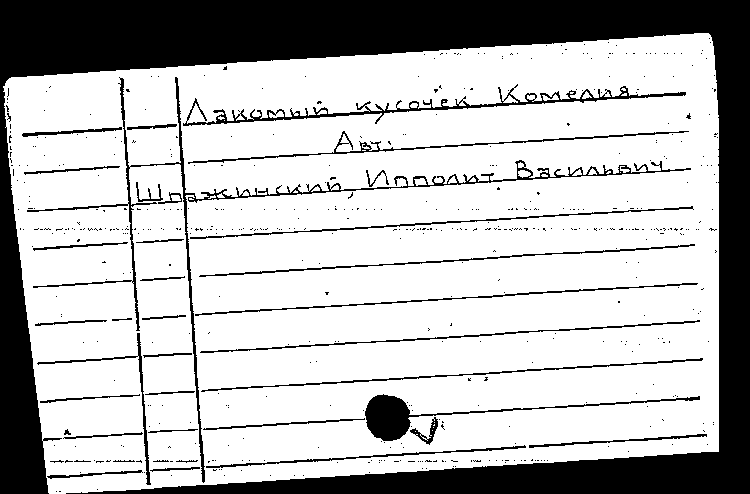 Лакомый кусочек Комедия.
Авт:
Шпажинский, Ипполит Васильевич